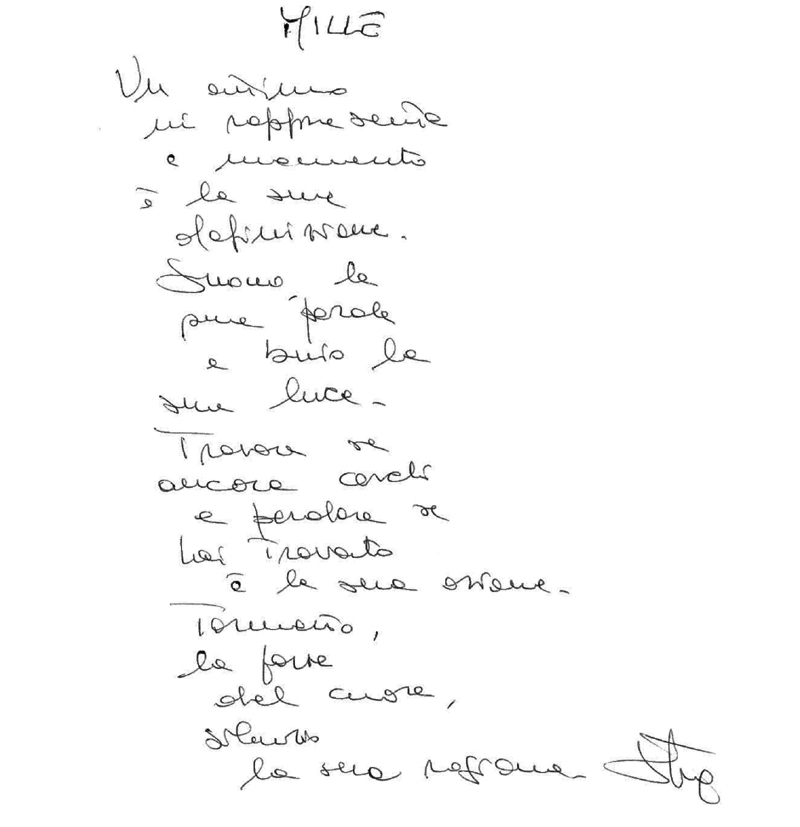 MILLE
Un attimo
mi rappresenta
e momento
è la sua
definizione.
Suono la
sua parola
e buio la
sua luce.
Trovare se
ancora cerchi
e perdere se
hai trovato
è la sua azione.
Tormento,
la forza
del cuore,
silenzio
la sua ragione.